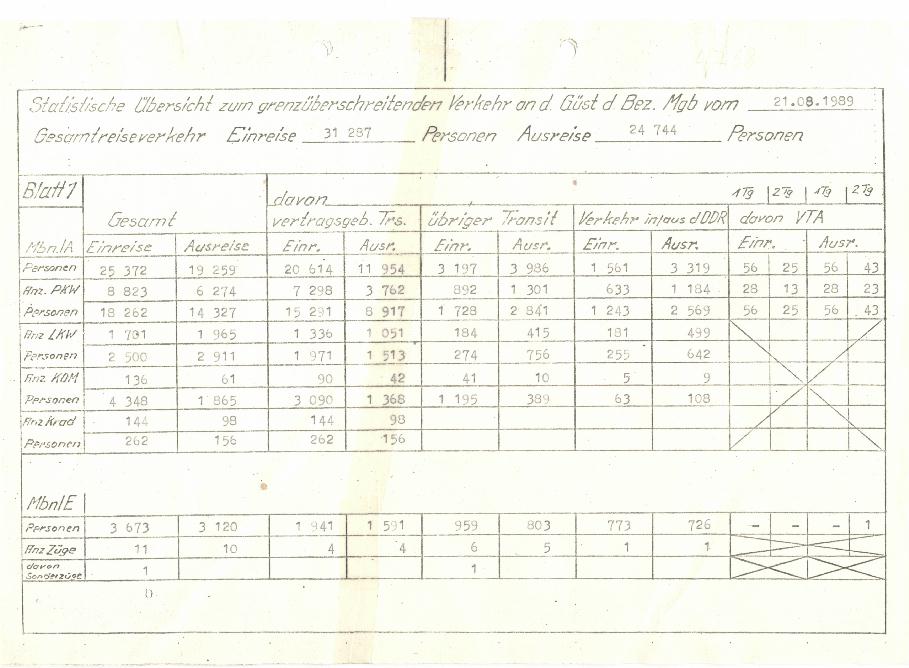 Statistische Übersicht zum grenzüberschreitenden Verkehr an d. Güst d Bez. Mgb vom 21.08.1989
Gesamtreiseverkehr Einreise 31 287 Personen Ausreise 24 744 Personen
Blatt 1 davon 1Tg 2Tg 1Tg 2Tg
Gesamt vertragsgeb. Trs. übriger Transit Verkehr in/aus d DDR davon VTA
Mbn./A Einreise Ausreise Einr. Ausr. Einr. Ausr. Einr. Ausr. Einr. Ausr.
Personen 25 372 19 259 20 614 11 954 3 197 3 986 1 561 3 319 56 25 56 43
Anz. PKW 8 823 6 274 7 298 3 762 892 1 301 633 1 184 28 13 28 23
Personen 18 262 14 327 15 291 8 917 1 728 2 841 1 243 2 569 56 25 56 43
Anz LKW 1 701 1 965 1 336 1 051 184 415 181 499
Personen 2 500 2 911 1 971 1 513 274 756 255 642
Anz KOM 136 61 90 42 41 10 5 9
Personen 4 348 1 865 3 090 1 368 1 195 389 63 108
Anz Krad 144 98 144 98
Personen 262 156 262 156
Mbn/E
Personen 3 673 3 120 1 941 1 591 959 803 773 726 - - - 1
Anz Züge 11 10 4 4 6 5 1 1
davon
Sonderzüge 1 1